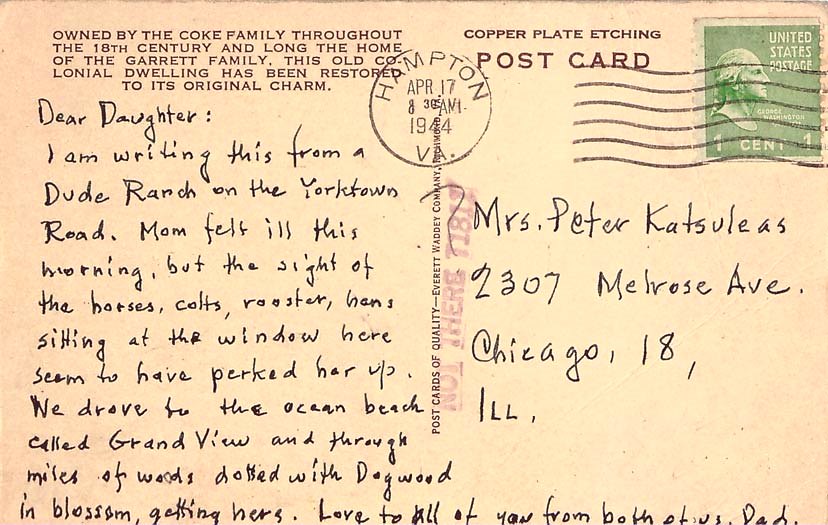 OWNED BY THE COKE FAMILY THROUGHOUT
THE 18TH CENTURY AND LONG THE HOME
OF THE GARRETT FAMILY, THIS OLD CO-
LONIAL DWELLING HAS BEEN RESTORED
TO ITS ORIGINAL CHARM.
COPPER PLATE ETCHING
POST CARD
HAMPTON
APR 17
8 30 AM
1944
VA.
UNITED
STATES
POSTAGE
GEORGE
WASHINGTON
1 CENT 1
Dear Daughter:
I am writing this from a
Dude Ranch on the Yorktown
Road. Mom felt ill this
morning, but the sight of
the horses, colts, rooster, hens
sitting at the window here
seem to have perked her up.
We drove to the ocean beach
called Grand View and through
miles of woods dotted with Dogwood
in blossom, getting here. Love to all of you from both of us, Dad.
POST CARDS OF QUALITY—EVERETT WADDEY COMPANY, RICHMOND,
NOT THERE 71818
Mrs. Peter Katsuleas
2307 Melrose Ave.
Chicago, 18,
ILL.